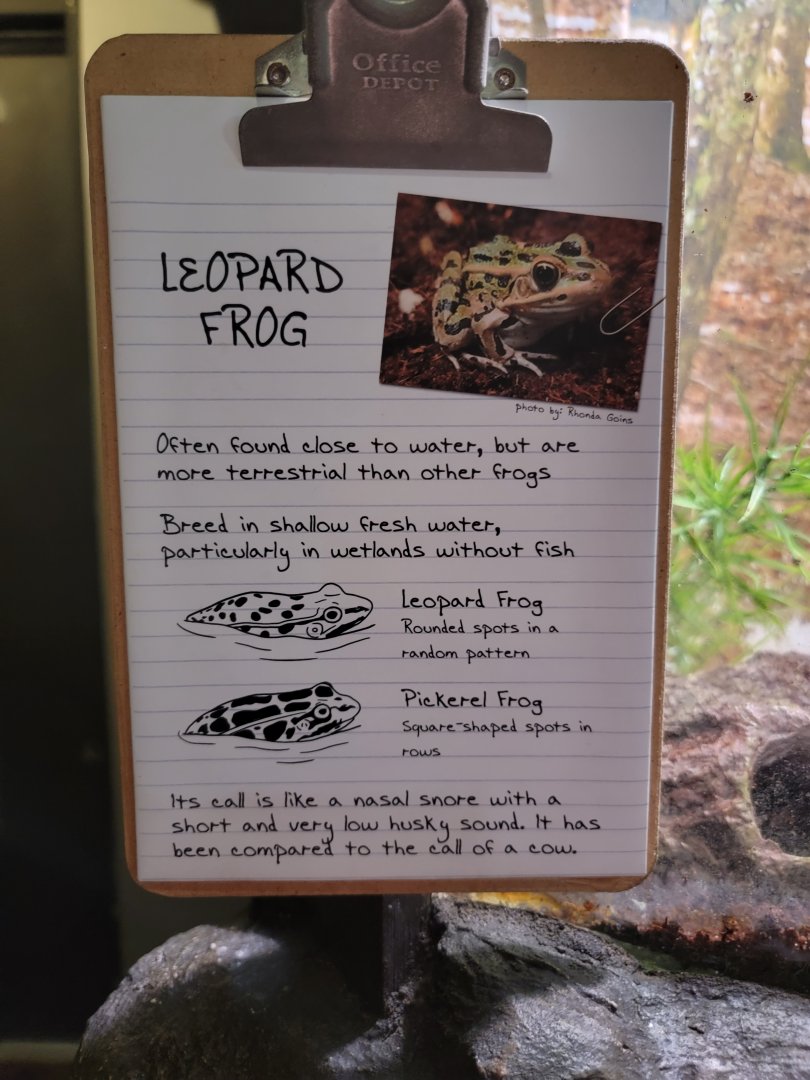 Office
DEPOT
LEOPARD
FROG
photo by: Rhonda Goins
Often found close to water, but are
more terrestrial than other frogs
Breed in shallow fresh water,
particularly in wetlands without fish
Leopard Frog
Rounded spots in a
random pattern
Pickerel Frog
Square-shaped spots in
rows
Its call is like a nasal snore with a
short and very low husky sound. It has
been compared to the call of a cow.